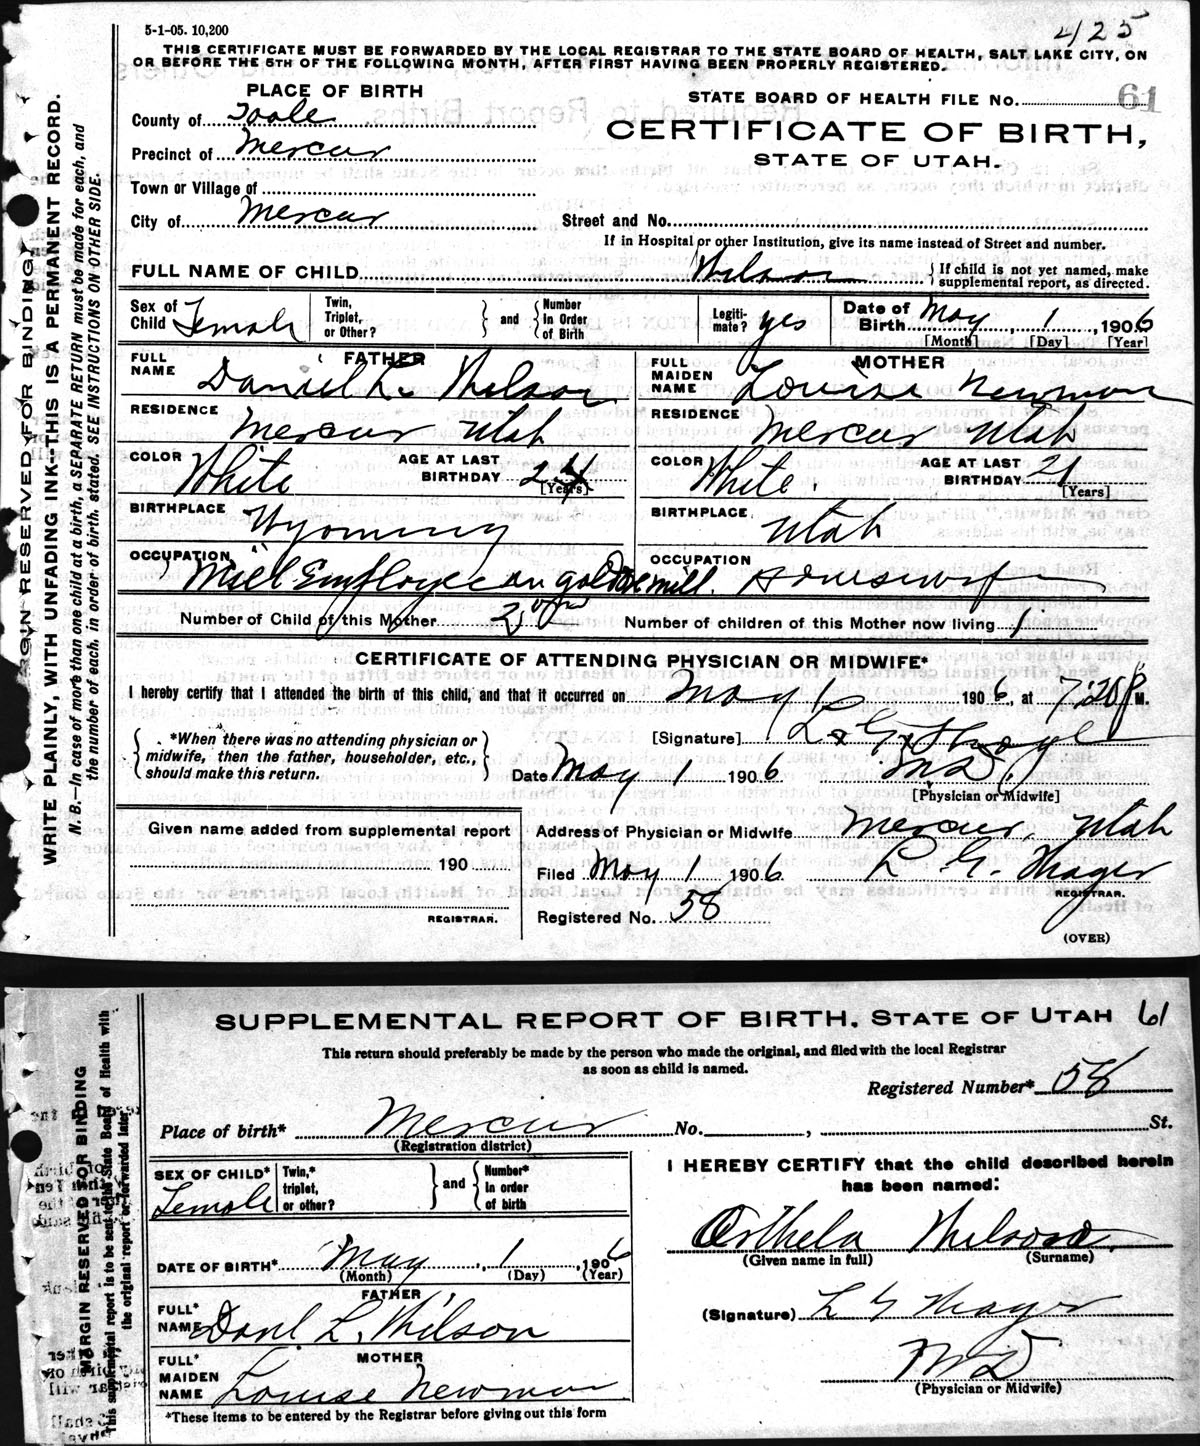 5-1-05. 10,200
425
THIS CERTIFICATE MUST BE FORWARDED BY THE LOCAL REGISTRAR TO THE STATE BOARD OF HEALTH, SALT LAKE CITY, ON
OR BEFORE THE 5TH OF THE FOLLOWING MONTH, AFTER FIRST HAVING BEEN PROPERLY REGISTERED.
PLACE OF BIRTH
STATE BOARD OF HEALTH FILE No. 61
County of Tooele
CERTIFICATE OF BIRTH,
STATE OF UTAH.
Precinct of Mercur
Town or Village of
City of Mercur
Street and No.
If in Hospital or other Institution, give its name instead of Street and number.
FULL NAME OF CHILD Wilson
If child is not yet named, make supplemental report, as directed.
Sex of Child Female
Twin, Triplet, or Other?
and
Number in Order of Birth
Legitimate? yes
Date of Birth May 1, 1906
[Month] [Day] [Year]
FATHER
FULL NAME Daniel L. Wilson
MOTHER
FULL MAIDEN NAME Louise Newman
RESIDENCE Mercur Utah
RESIDENCE Mercur Utah
COLOR White
AGE AT LAST BIRTHDAY 24 [Years]
COLOR White.
AGE AT LAST BIRTHDAY 21 [Years]
BIRTHPLACE Wyoming
BIRTHPLACE Utah
OCCUPATION Mill Employee on gold mill.
OCCUPATION Housewife
Number of Child of this Mother 2nd
Number of children of this Mother now living 1
CERTIFICATE OF ATTENDING PHYSICIAN OR MIDWIFE*
I hereby certify that I attended the birth of this child, and that it occurred on May 1 1906, at 7:20 P M.
*When there was no attending physician or midwife, then the father, householder, etc., should make this return.
[Signature] L. G. Thayer
M.D.
[Physician or Midwife]
Date May 1 1906
Given name added from supplemental report
190
REGISTRAR.
Address of Physician or Midwife Mercur, Utah
Filed May 1 1906 L. G. Thayer
REGISTRAR.
Registered No. 58
(OVER)
MARGIN RESERVED FOR BINDING
WRITE PLAINLY, WITH UNFADING INK--THIS IS A PERMANENT RECORD.
N. B.—In case of more than one child at a birth, a SEPARATE RETURN must be made for each, and
the number of each, in order of birth, stated. SEE INSTRUCTIONS ON OTHER SIDE.
SUPPLEMENTAL REPORT OF BIRTH. STATE OF UTAH 61
This return should preferably be made by the person who made the original, and filed with the local Registrar
as soon as child is named.
Registered Number* 58
Place of birth* Mercur No. , St.
(Registration district)
SEX OF CHILD* Female
Twin,* triplet, or other?
and
Number* in order of birth
I HEREBY CERTIFY that the child described herein
has been named:
Orthela Wilson
(Given name in full) (Surname)
DATE OF BIRTH* May, 1, 1906
(Month) (Day) (Year)
FATHER
FULL* NAME Danl L. Wilson
(Signature) L G Thayer
MD
(Physician or Midwife)
MOTHER
FULL* MAIDEN NAME Louise Newman
*These items to be entered by the Registrar before giving out this form
MARGIN RESERVED FOR BINDING
This supplemental report is to be sent to the State Board of Health with
the original report or forwarded later.